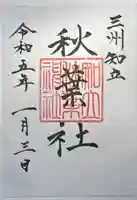 三州知立
秋葉社
令和五年一月三日